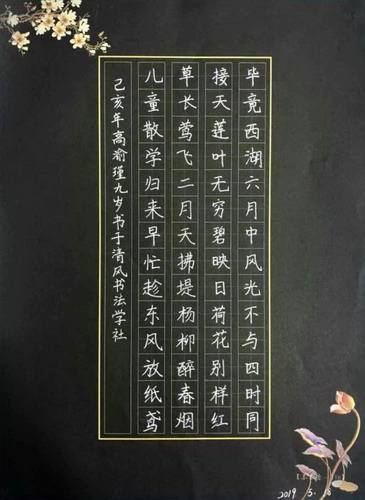 毕竟西湖六月中风光不与四时同
接天莲叶无穷碧映日荷花别样红
草长莺飞二月天拂堤杨柳醉春烟
儿童散学归来早忙趁东风放纸鸢
己亥年高瑾九岁书于清风书法学社
2019. 5.